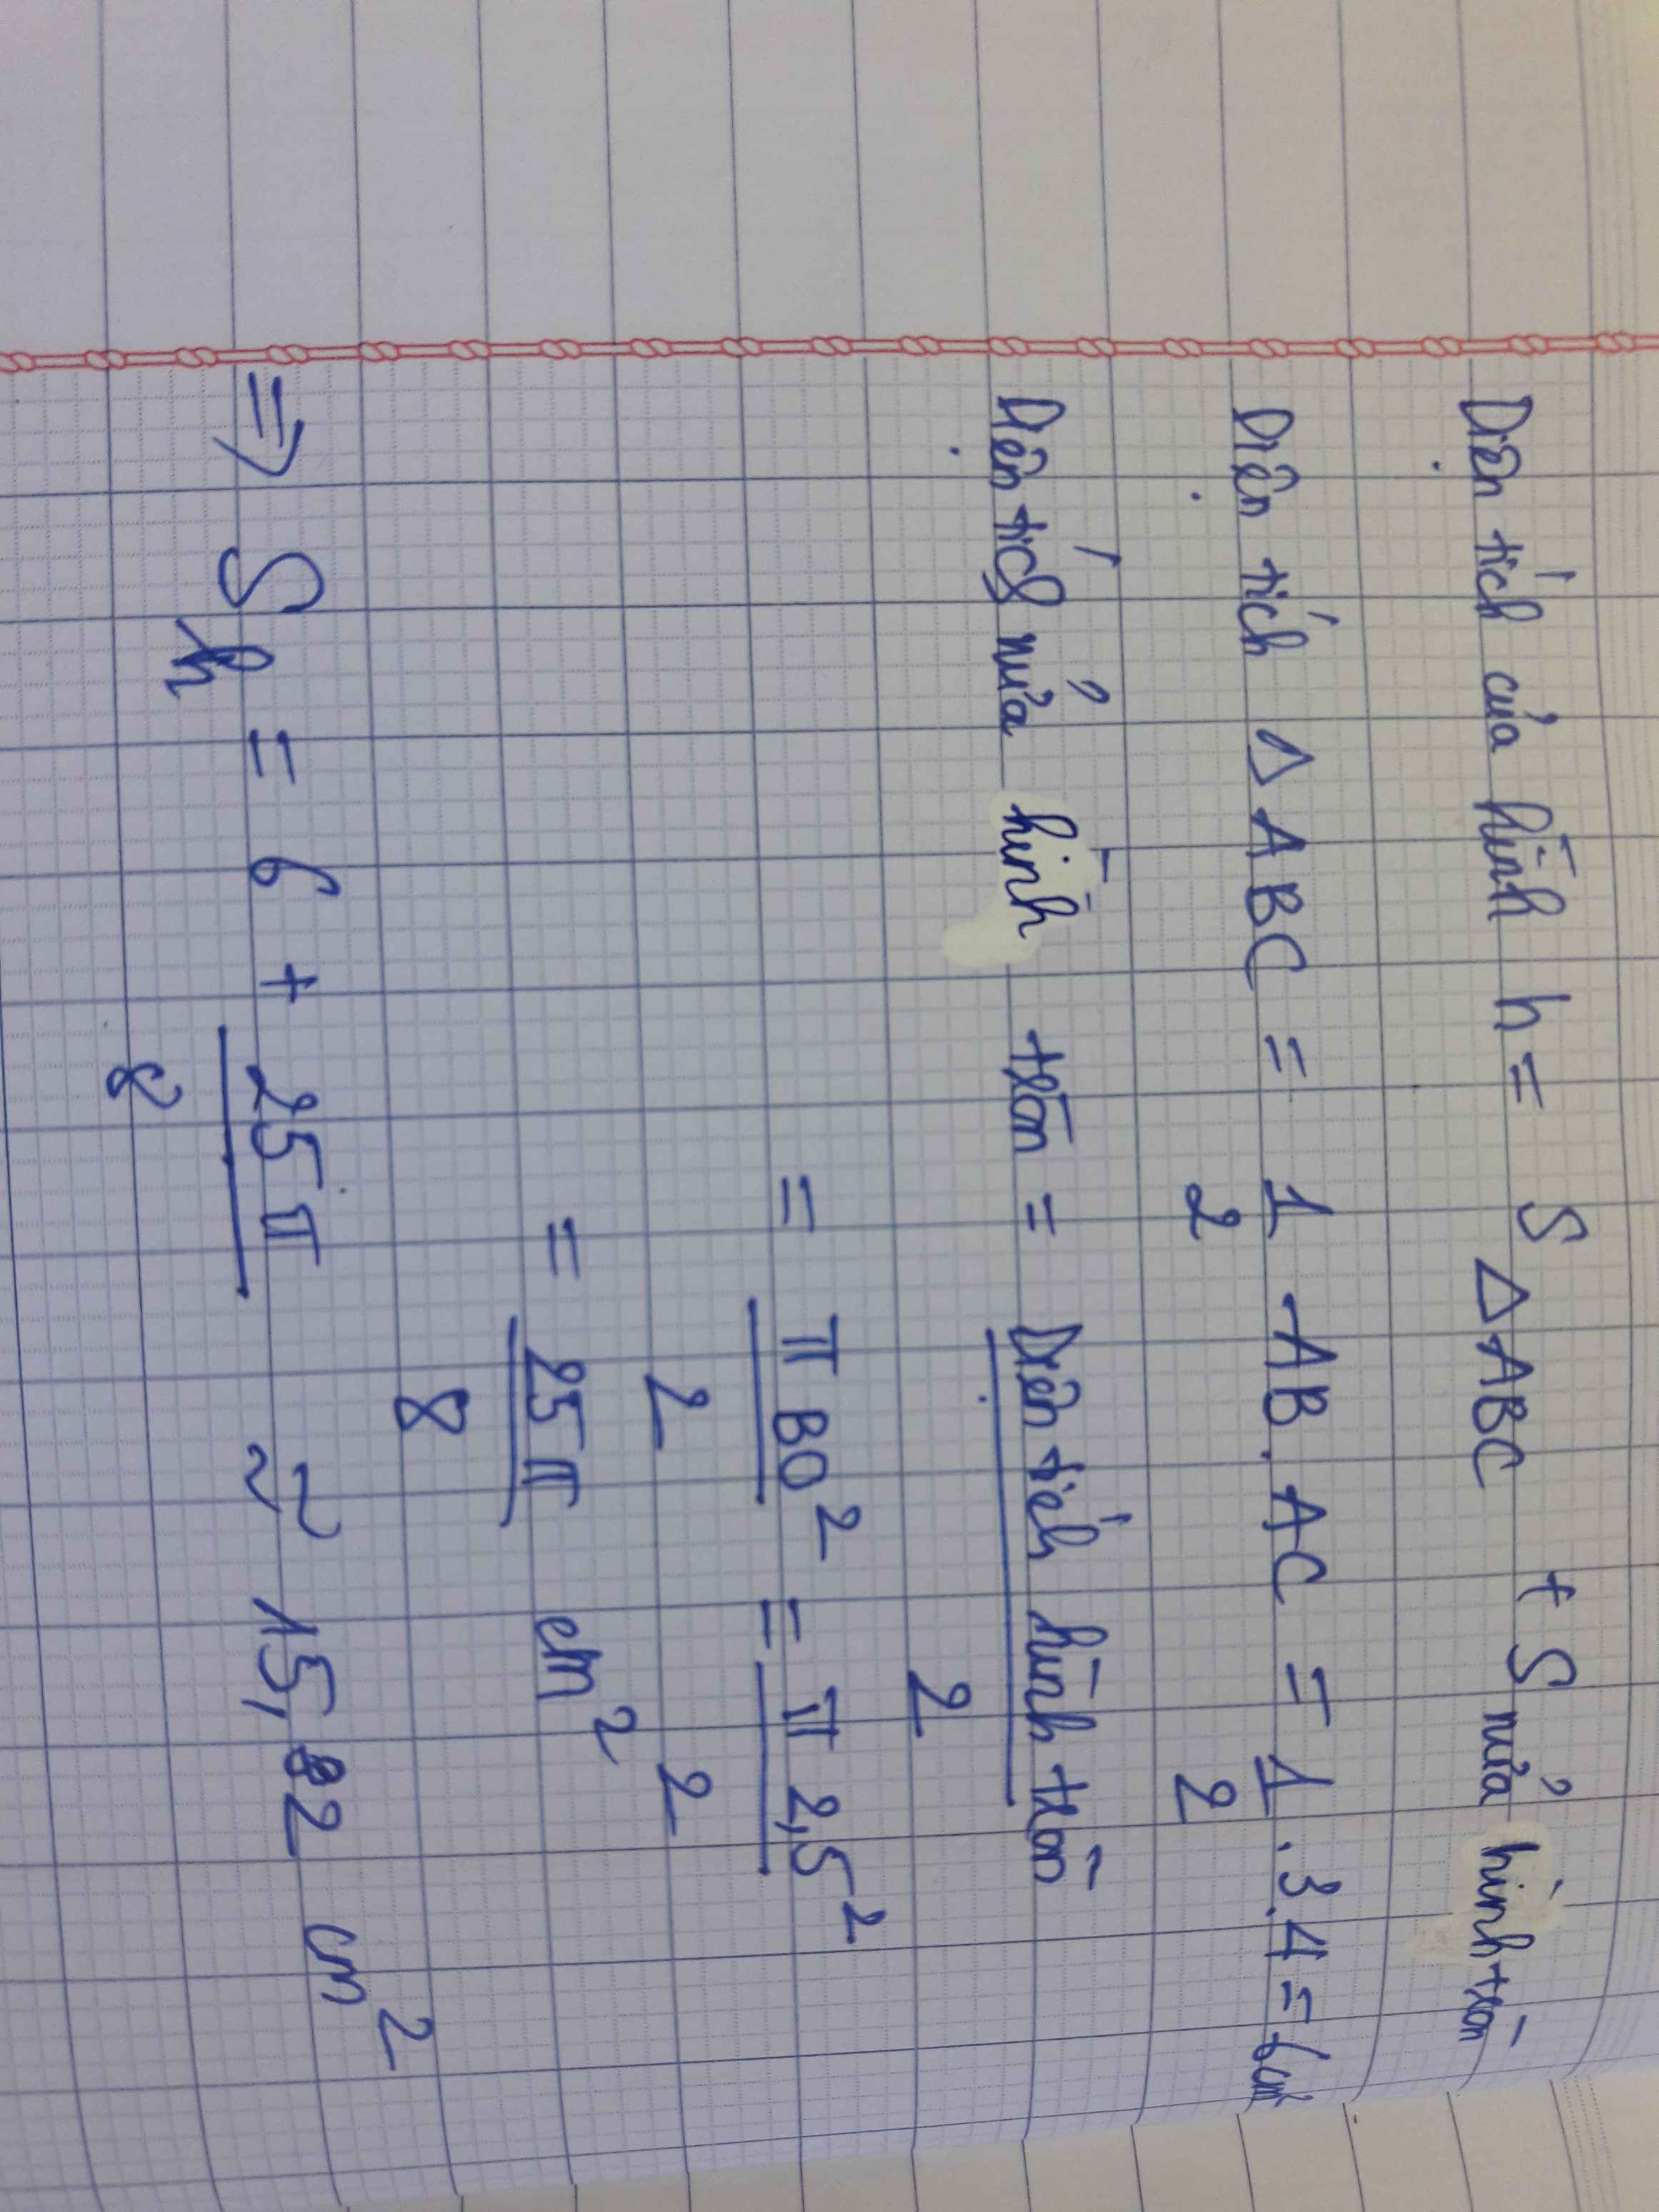 Diện tích của hình h = S △ABC + S nửa hình tròn
Diện tích △ABC = 1/2 AB.AC = 1/2 .3.4 = 6cm²
Diện tích nửa hình tròn = Diện tích hình tròn / 2
= π BO² / 2 = π 2,5² / 2
= 25π / 8 cm²
⇒ Sh = 6 + 25π / 8 ≈ 15,82 cm²